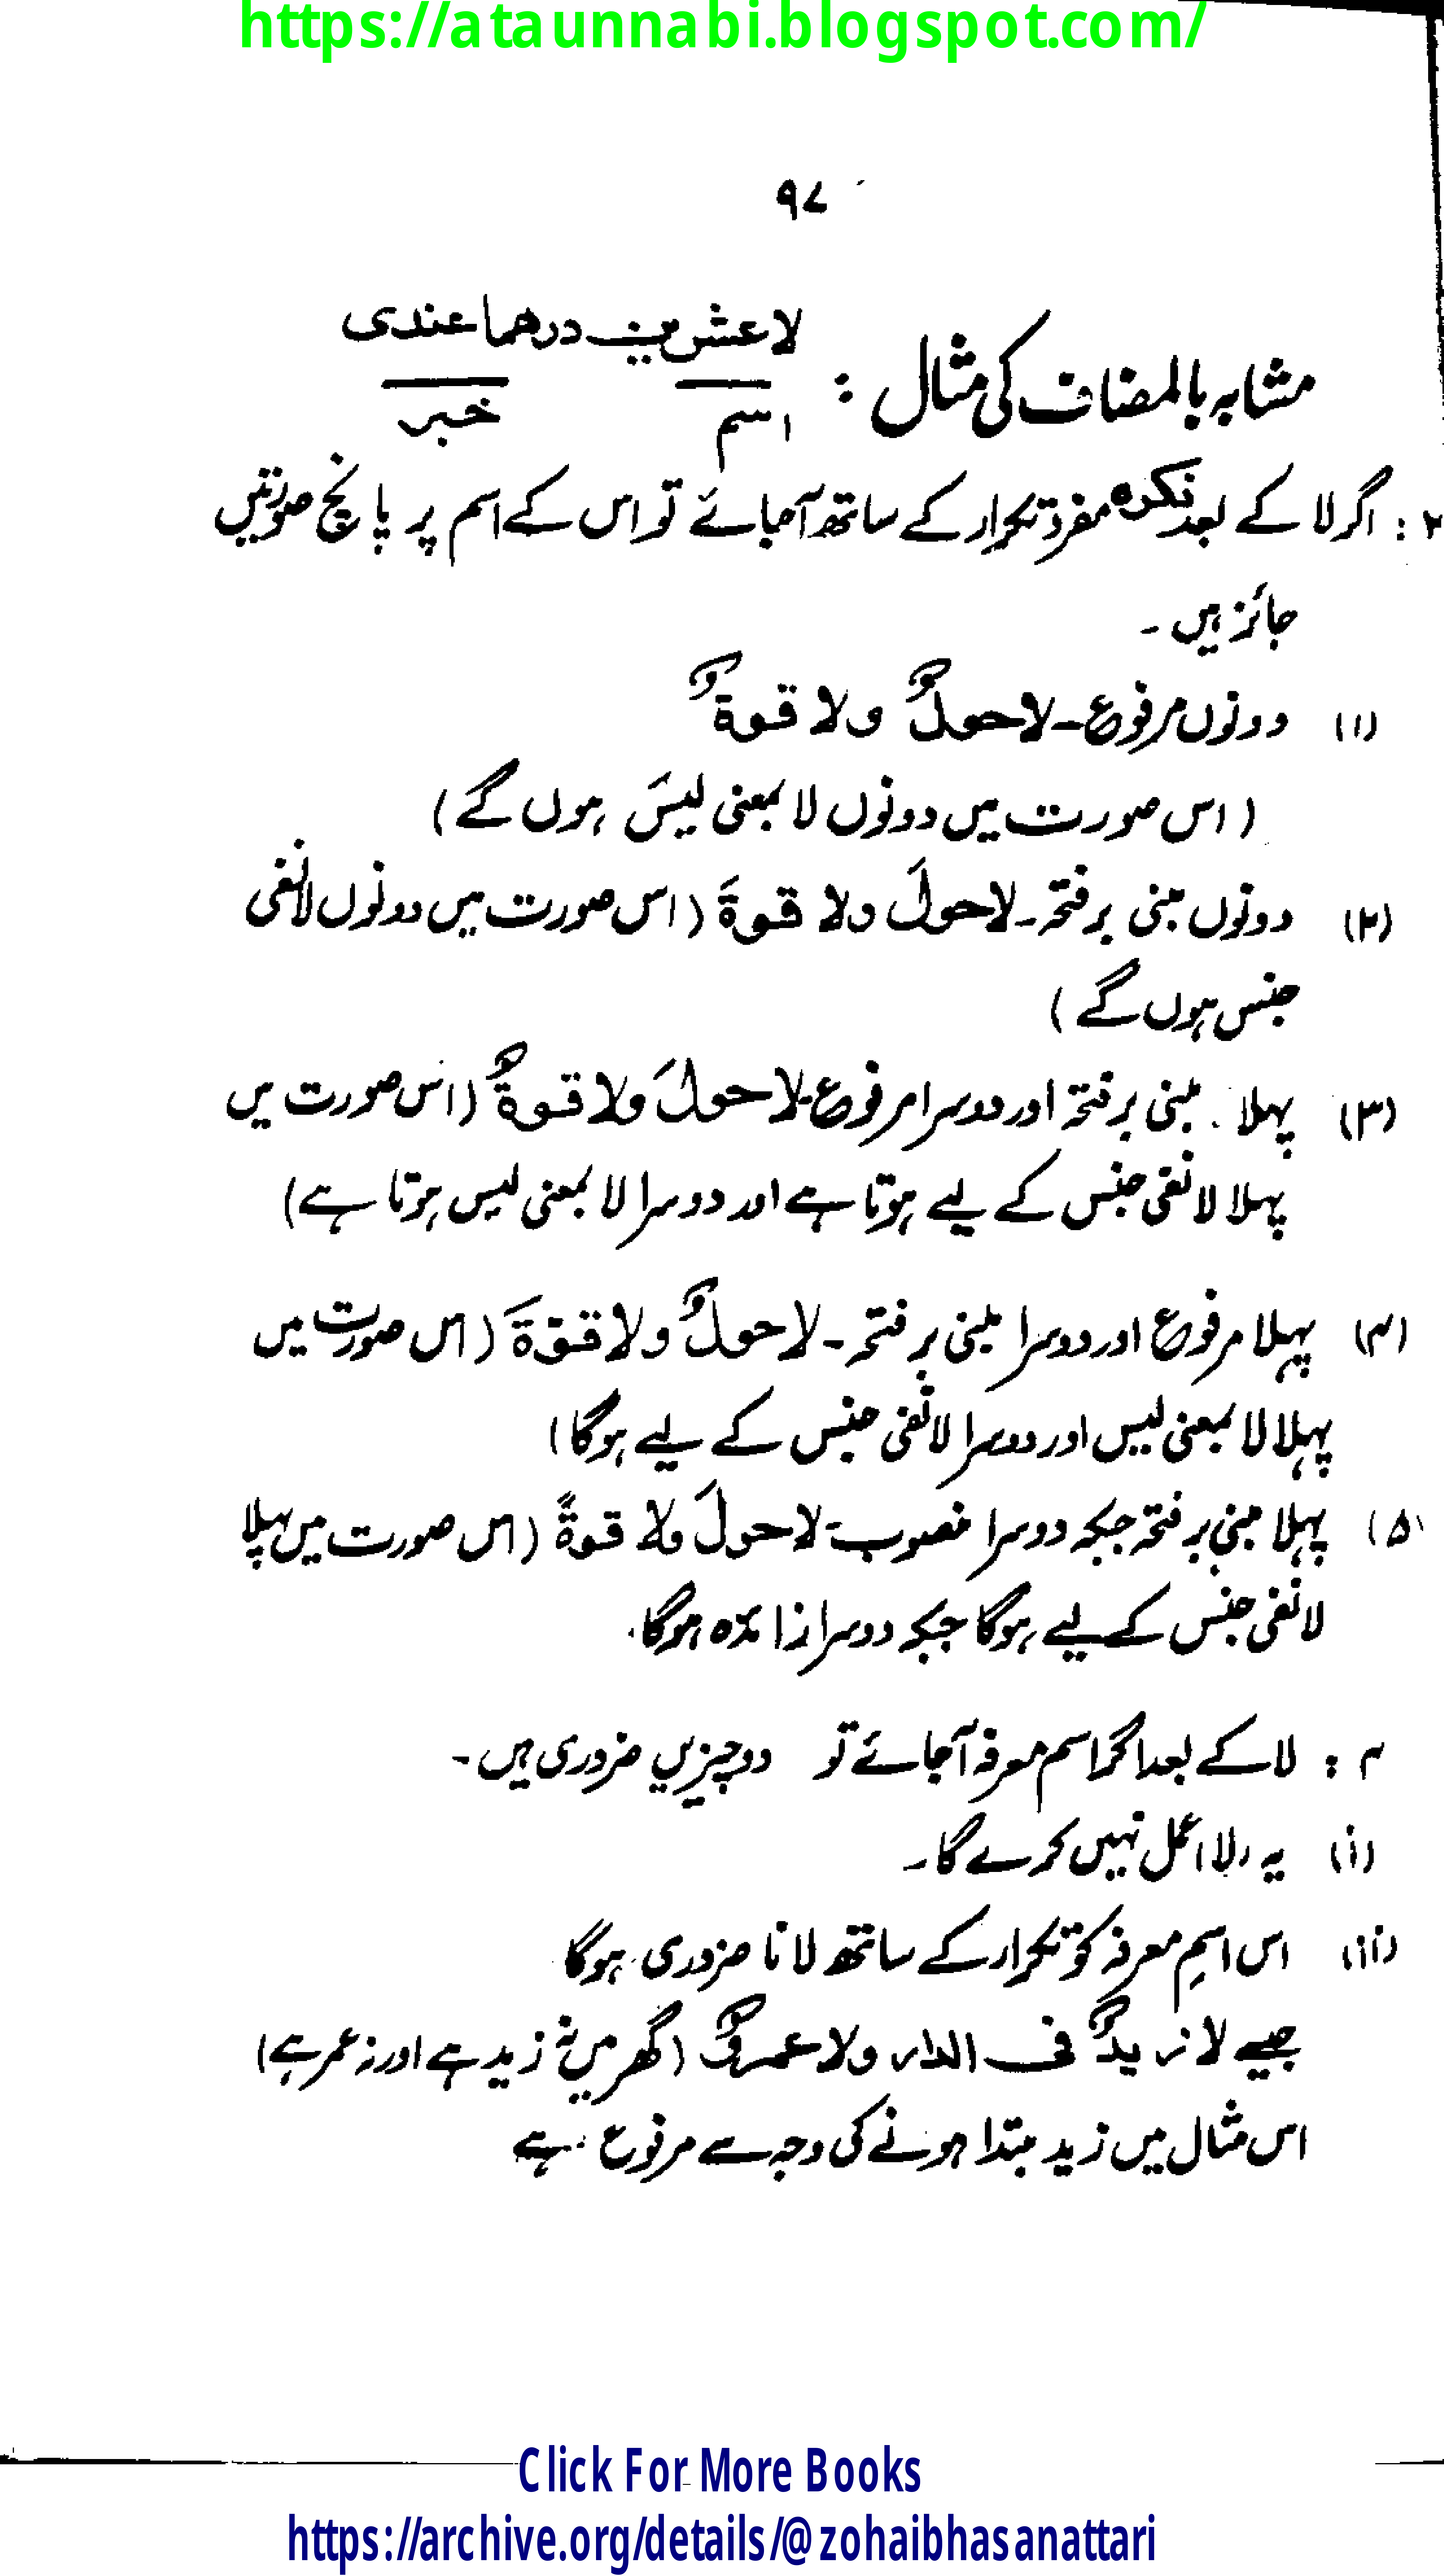 https://ataunnabi.blogspot.com/
۹۷
مشابہ بالمضاف کی مثال : لا عشرین درھما عندی
اسم خبر
۲ : اگر لا کے بعد نکرہ مفرد تکرار کے ساتھ آجائے تو اس کے اسم پر پانچ صورتیں
جائز ہیں ۔
(۱) دونوں مرفوع ۔ لا حولٌ ولا قوۃٌ
( اس صورت میں دونوں لا بمعنی لیسَ ہوں گے )
(۲) دونوں مبنی بر فتحہ ۔ لا حولَ ولا قوۃَ ( اس صورت میں دونوں لا نفی
جنس ہوں گے )
(۳) پہلا مبنی بر فتحہ اور دوسرا مرفوع ۔ لا حولَ ولا قوۃٌ ( اس صورت میں
پہلا لا نفی جنس کے لیے ہوتا ہے اور دوسرا لا بمعنی لیس ہوتا ہے )
(۴) پہلا مرفوع اور دوسرا مبنی بر فتحہ ۔ لا حولٌ ولا قوّۃَ ( اس صورت میں
پہلا لا بمعنی لیس اور دوسرا لا نفی جنس کے لیے ہوگا )
(۵) پہلا مبنی بر فتحہ جبکہ دوسرا منصوب ۔ لا حولَ ولا قوۃً ( اس صورت میں پہلا
لا نفی جنس کے لیے ہوگا جبکہ دوسرا زائدہ ہوگا ۔
۴ : لا کے بعد اگر اسم معرفہ آجائے تو دو چیزیں ضروری ہیں ۔
(i) یہ (لا) عمل نہیں کرے گا ۔
(ii) اس اسمِ معرفہ کو تکرار کے ساتھ لانا ضروری ہوگا
جیسے لا زیدٌ فی الدار ولا عمروٌ ( گھر میں نہ زید ہے اور نہ عمر ہے )
اس مثال میں زید مبتدا ہونے کی وجہ سے مرفوع ہے
Click For More Books
https://archive.org/details/@zohaibhasanattari